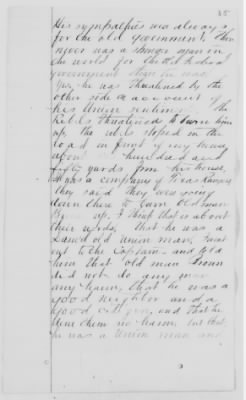 His sympathies was always
for the old government, there
never was a stronger man in
the world for the old
government than he was.
Yes, he was threatened by the
other side on account of
his Union sentiments. The
Rebels threatened to burn him
up, the rebels stoped in the
road in front of my house
about hundred and
fifty yards from his house,
It was a company of Texas Rangers
they said they were going
down there to burn old man
Brown up, I think that is about
their words, that he was a
damd old Union man, I went
out to the Captain and told
him that old man Brown
did not do any man
any harm, that he was a
good neighbor and a
good citizen, and that he
done them no harm, but that
he was a Union man and